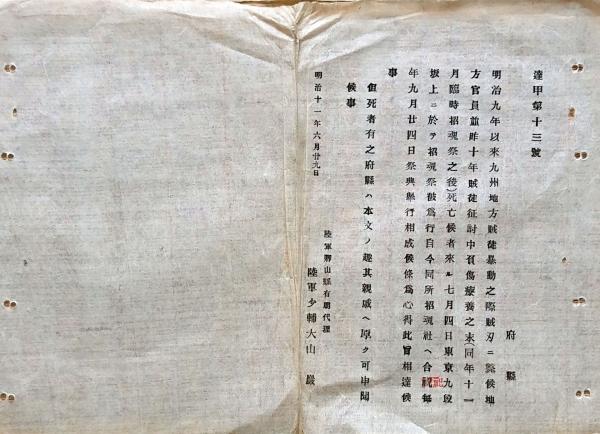 達甲第十三號
府縣
明治九年以來九州地方賊徒暴動之際賊刃ニ斃候地
方官員並昨十年賊徒征討中負傷療養之末(同年十一
月臨時招魂祭之後)死亡候者來ル七月四日東京九段
坂上ニ於テ招魂祭被爲行自今同所招魂社ヘ合祀每
年九月廿四日祭典擧行相成候條爲心得此旨相達候
事
但死者有之府縣ハ本文ノ趣其親戚ヘ厚ク可申聞
候事
明治十一年六月廿九日
陸軍卿山縣有朋代理
陸軍少輔大山巖